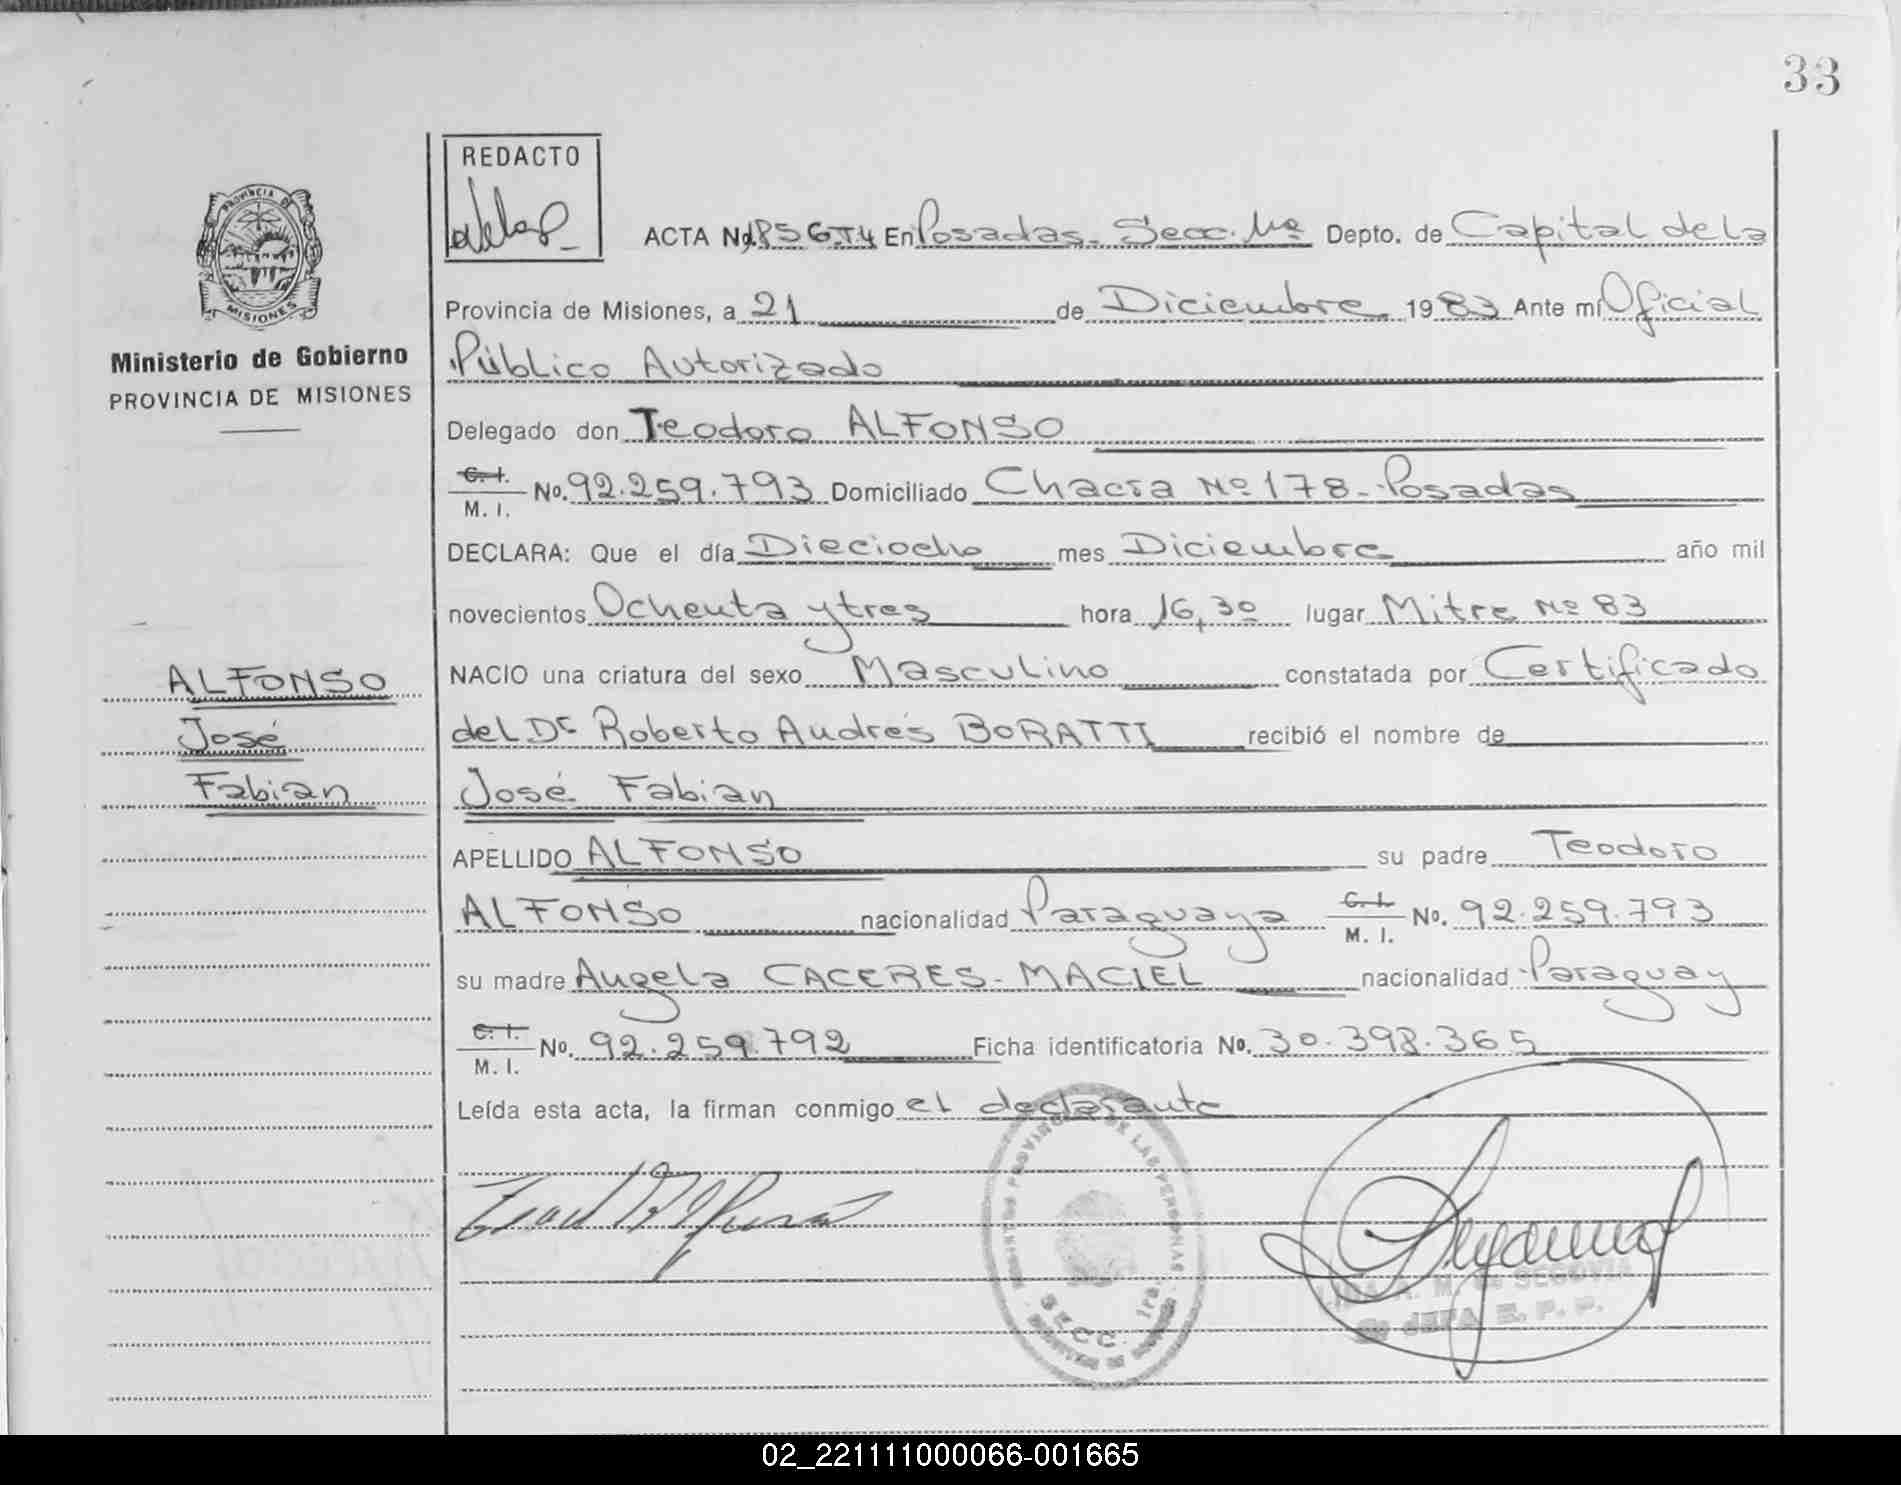 33
REDACTO
PROVINCIA DE
MISIONES
Ministerio de Gobierno
PROVINCIA DE MISIONES
ACTA No. 1856 T4 En Posadas. Secc. 1ra Depto. de Capital de la
Provincia de Misiones, a 21 de Diciembre 1983 Ante mí Oficial
Público Autorizado
Delegado don Teodoro ALFONSO
C. I.
M. I. No. 92.259.793 Domiciliado Chacra Nº 178 - Posadas
DECLARA: Que el día Dieciocho mes Diciembre año mil
novecientos Ochenta y tres hora 16,30 lugar Mitre Nº 83
NACIO una criatura del sexo Masculino constatada por Certificado
del Dr Roberto Andrés BORATTI recibió el nombre de
José Fabian
APELLIDO ALFONSO su padre Teodoro
ALFONSO nacionalidad Paraguaya C. I.
M. I. No. 92.259.793
su madre Angela CACERES - MACIEL nacionalidad Paraguay
C. I.
M. I. No. 92.259.792 Ficha identificatoria No. 30.398.365
Leída esta acta, la firman conmigo el declarante
ALFONSO
José
Fabian
REGISTRO PROVINCIAL DE LAS PERSONAS
SECC. 1ra.
A. M. de SEGOVIA
JEFA E. P. P.
02_221111000066-001665